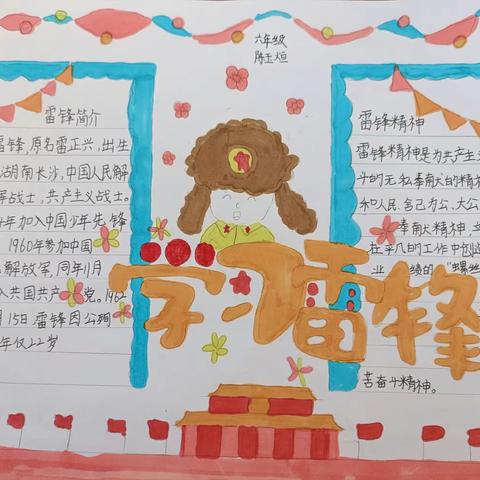 六年级
陈玉烜
雷锋简介
雷锋,原名雷正兴,出生
湖南长沙,中国人民解
军战士,共产主义战士。
年加入中国少年先锋
1960年参加中国
解放军,同年11月
入共国共产党。1962
月15日雷锋因公殉
年仅22岁
学习雷锋
雷锋精神
雷锋精神是为共产主
斗的无私奉献的精神
和人民,舍己为公、大公
奉献精神,立
在平凡的工作中创造
业绩的"螺丝
苦奋斗精神。